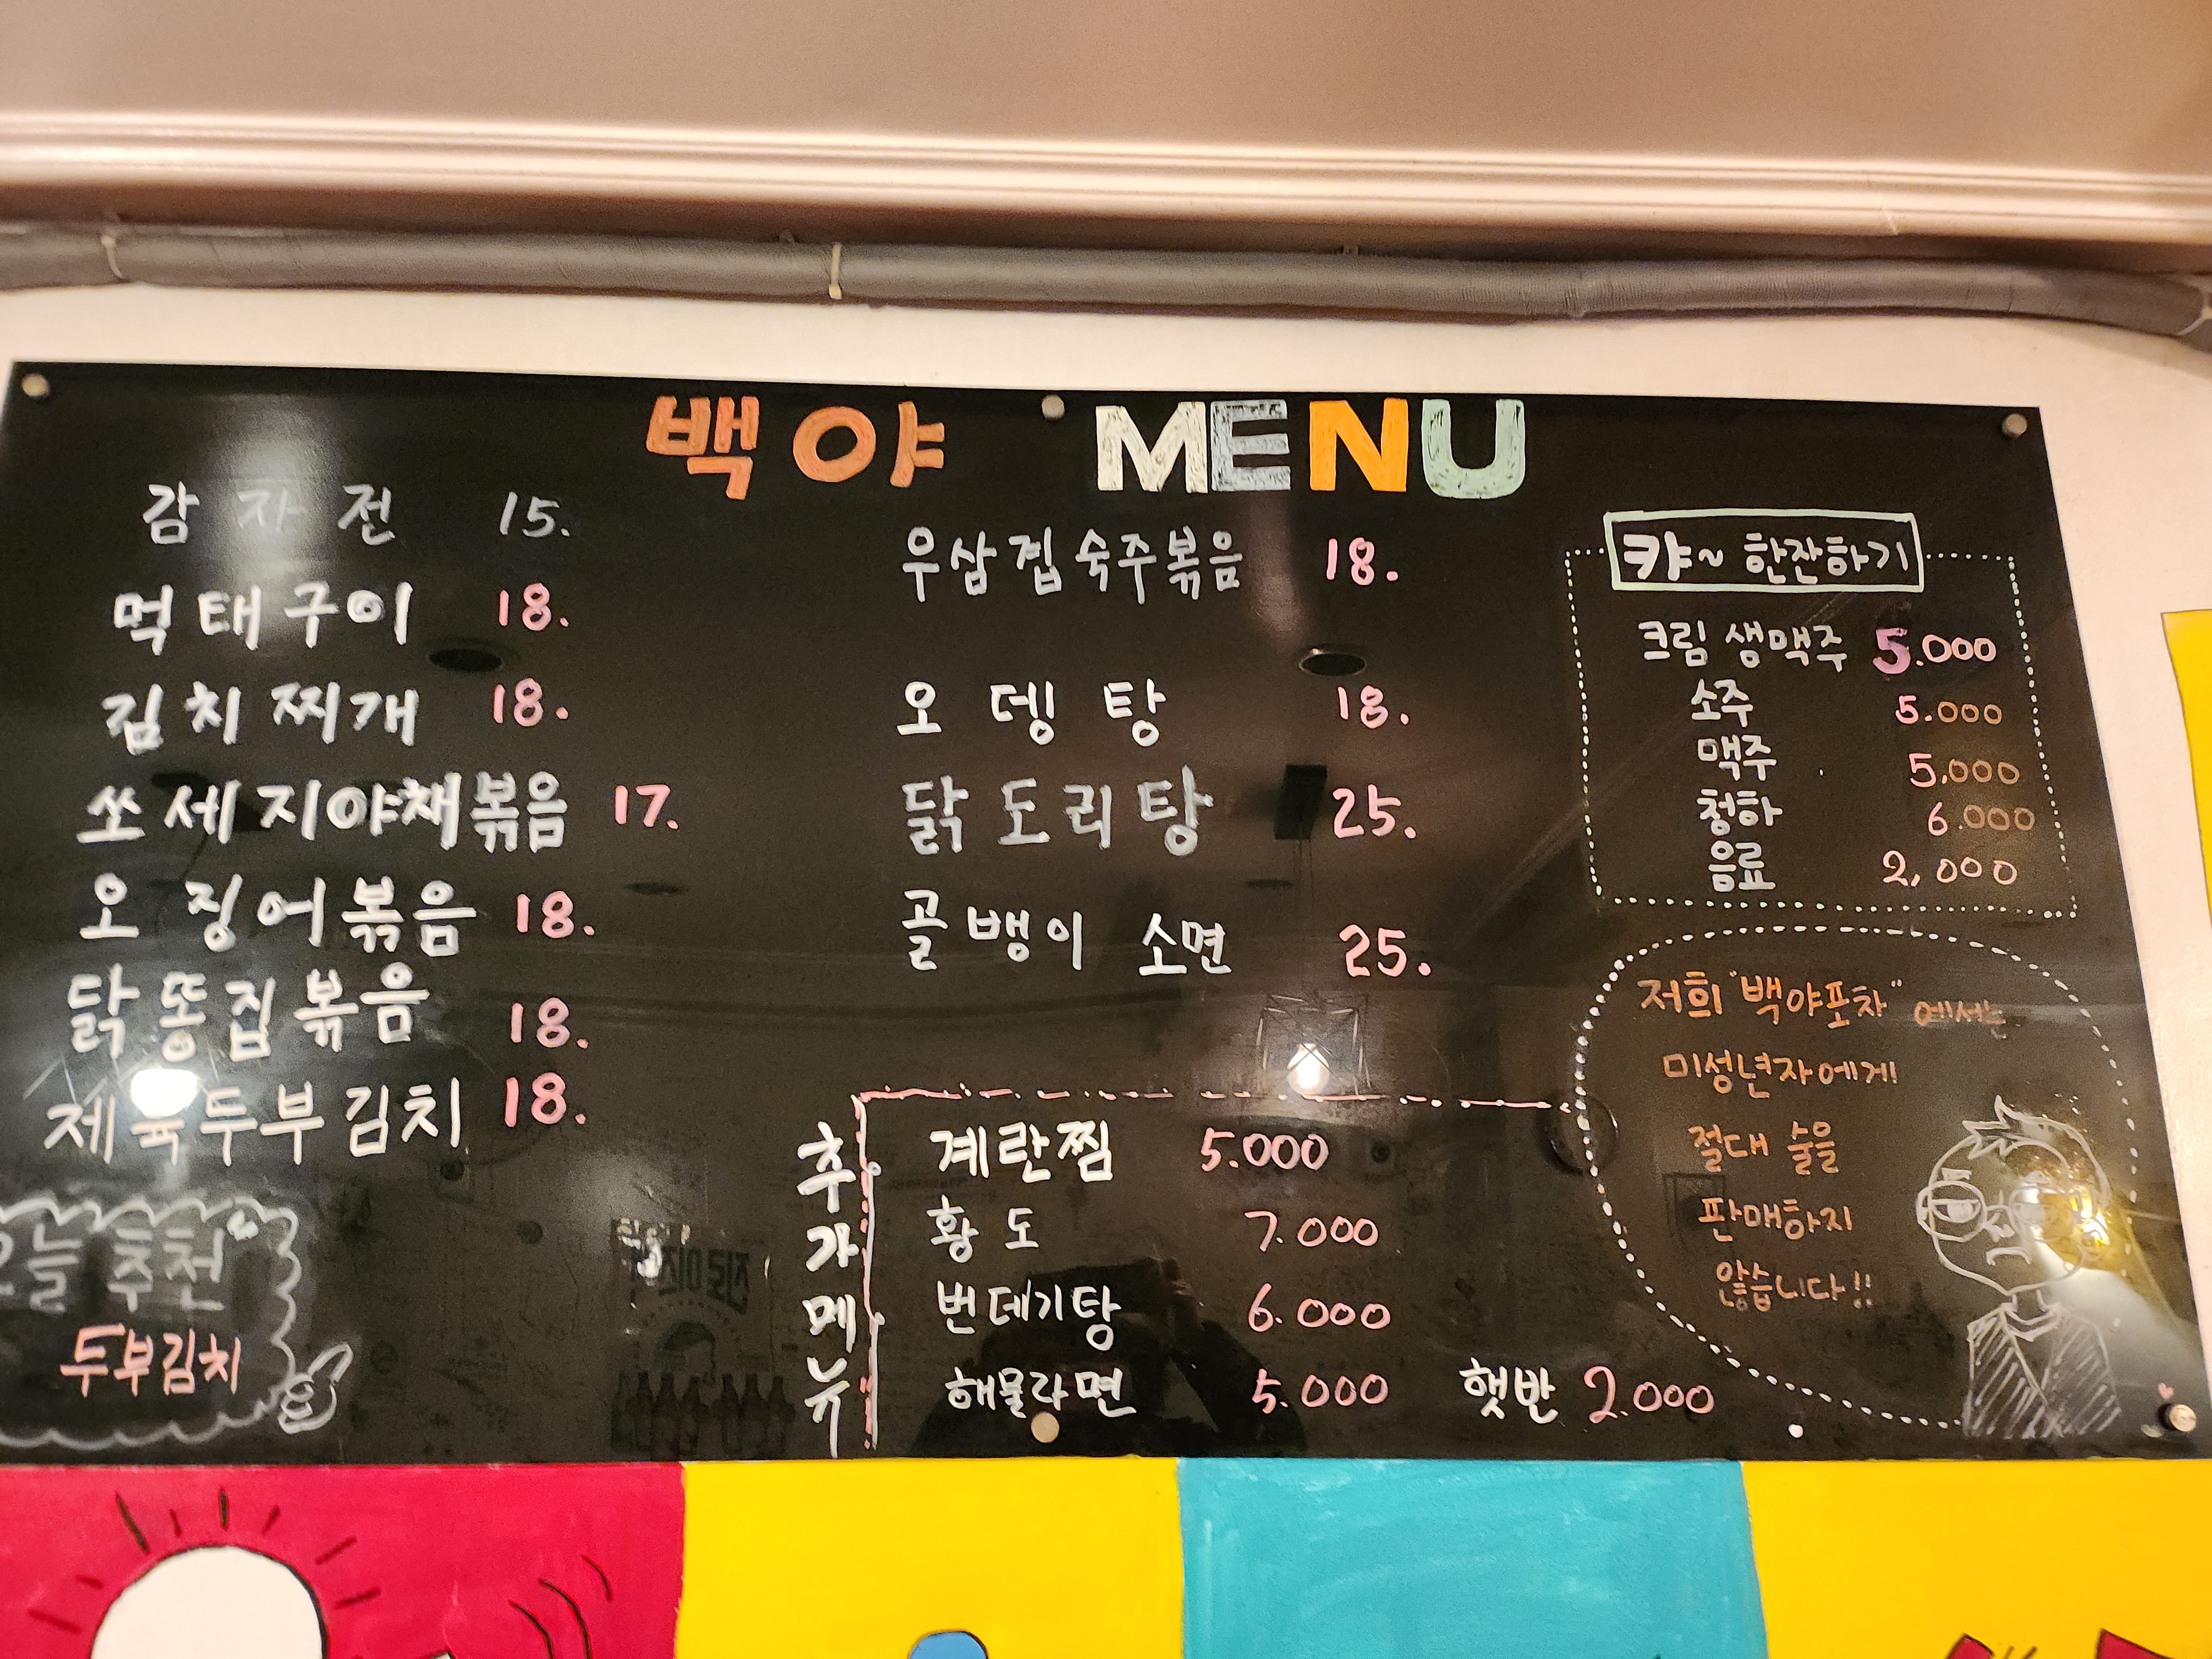 백야 MENU
감자전 15.
먹태구이 18.
김치찌개 18.
쏘세지야채볶음 17.
오징어볶음 18.
닭똥집볶음 18.
제육두부김치 18.
오늘 추천
두부김치
우삼겹숙주볶음 18.
오뎅탕 18.
닭도리탕 25.
골뱅이 소면 25.
추가메뉴
계란찜 5.000
황도 7.000
번데기탕 6.000
해물라면 5.000 햇반 2.000
캬~ 한잔하기
크림 생맥주 5.000
소주 5.000
맥주 5,000
청하 6.000
음료 2,000
저희 "백야포차" 에서는
미성년자에게
절대 술을
판매하지
않습니다!!